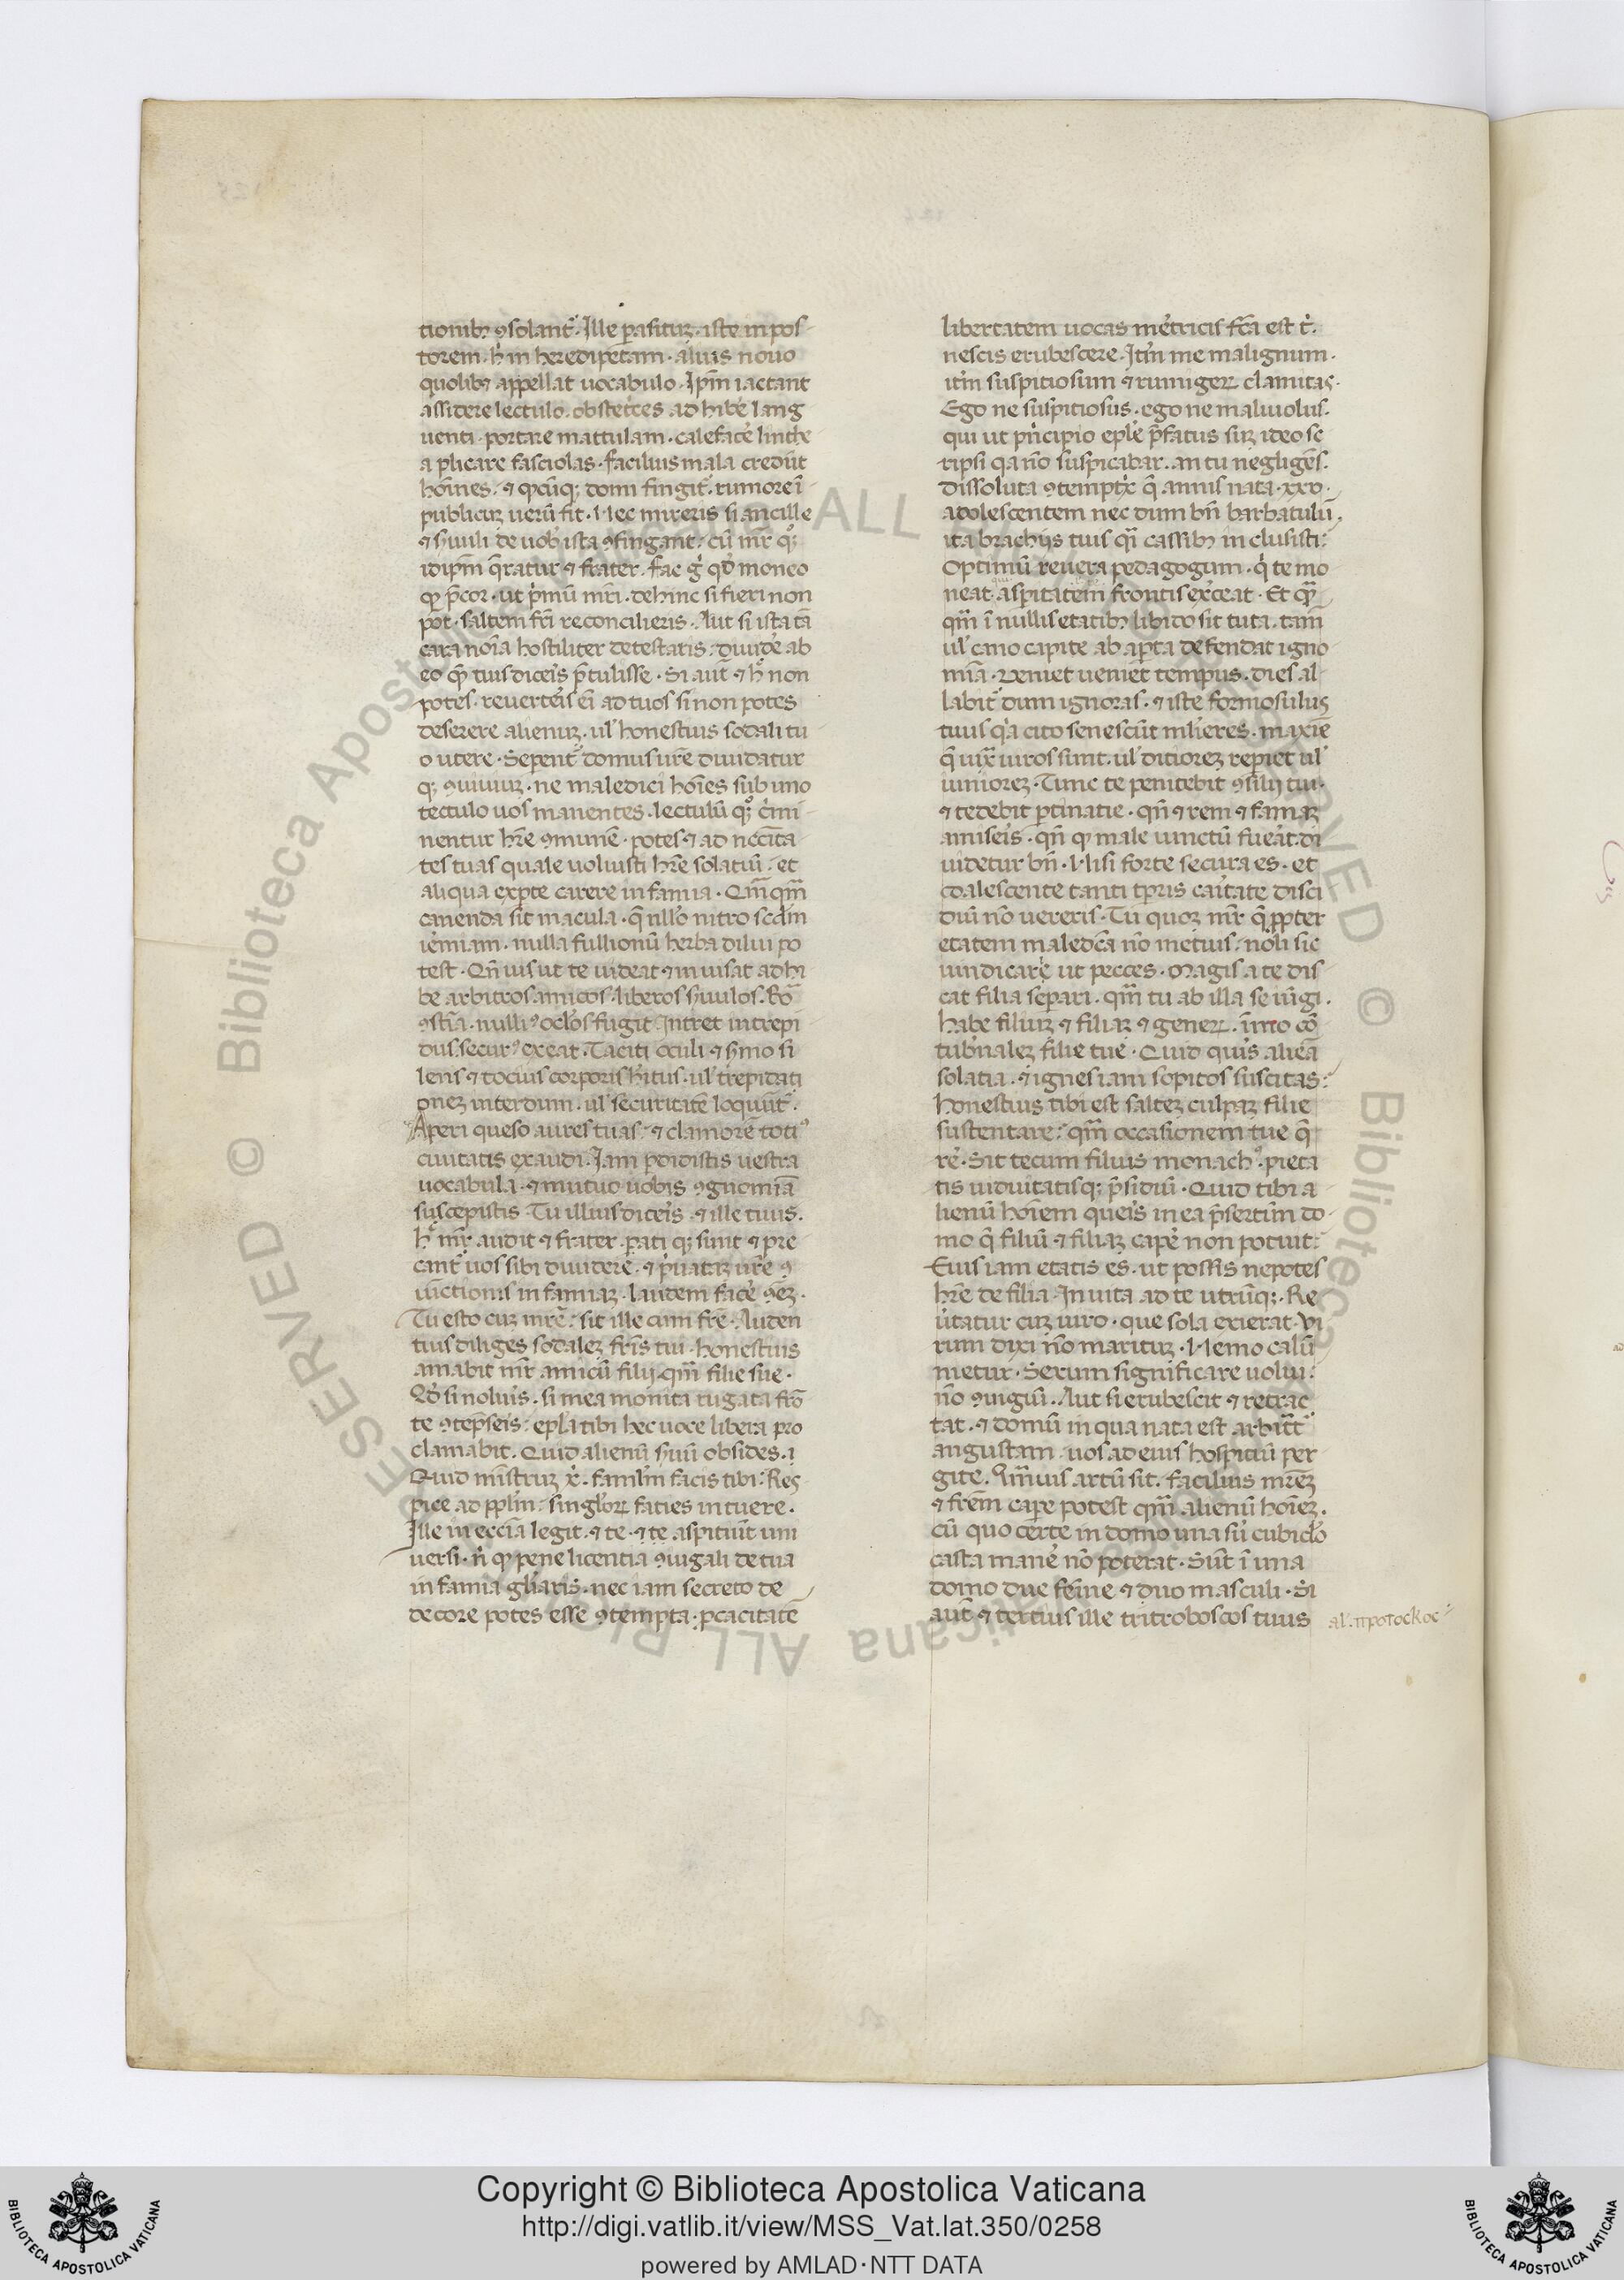 tionibꝫ ꝯsolant᷑. Ille parasituꝫ. iste inpos-
torem. h̓ in heredipetam. alius nouo
quolibꝫ appellat uocabulo. Ip̄m iactant
assidere lectulo. obstet̓ces adhibe̓ lang
uenti. portare mattulam. caleface̓ linthe
a plicare fasciolas. Facilius mala credūt
hoīnes. ⁊ qd̓cūqꝫ domi fingit᷑. rumor eī
publicuꝫ ueru᷑ fit. Nec mireris si ancille
⁊ s̓uuli de uob̓ ista ꝯfingant. cū mr̄ qꝫ
idip̄m q̄ratur ⁊ frater. Fac g̓ qd̓ moneo
qd̓ p̄cor. ut p̓mū mr̄i. dehinc si fieri non
pot̄. saltem fr̄i reconcilieris. Aut si ista tā
cara noīa hostiliter detestatis. diuide̓ ab
eo qm̄ tuis dic̓eis p̄tulisse. Si aut̄ ⁊ h̓ non
potes. reuert̓eis eī ad tuos si non potes
deserere alienuꝫ. ul̓ honestius sodali tu
o utere. Separent᷑ domus ur̄e diuidatur
qꝫ ꝯuiuiuꝫ. ne maledici hoīes sub uno
tectulo uos manentes. lectulū qꝫ c̓mi-
nentur hr̄e ꝯmunē. potes ⁊ ad nec̄cita
tes tuas quale uoluisti hr̄e solatiū. et
aliqua exp̱te carere infamia. Qm̄qm̄
cauenda sit macula. q̄ nll̓o nitro scd̄m
ie̓miam. nulla fullionū herba dilui po
test. Qn̄ uis ut te uideat ⁊ inuisat adhi
be arbitros amicos. liberos s̓uulos. Bo᷑
ꝯsti᷑a. nulliꝰ ocl̓os fugit. Intret intrepi
dus. securꝰ exeat. Taciti oculi ⁊ s̓mo si
lens ⁊ tocius corporis h̓itus. ul̓ trepidati
oneꝫ interdum. ul̓ securitatē loquunt᷑.
Aperi queso aures tuas. ⁊ clamorē totiꝰ
ciuitatis exaudi. Iam p̱didistis uestra
uocabula. ⁊ mutuo uobis ꝯgnomīa
suscepistis. Tu illius dic̓eis. ⁊ ille tuus.
h̓ mr̄ audit ⁊ frater. parati qꝫ sunt ⁊ pre
cant᷑ uos sibi diuidere. ⁊ p̓uataꝫ ur̄e ꝯ
iūctionis infamiaꝫ. laudem face̓ ꝯēꝫ.
Tu esto cuꝫ mr̄e. sit ille cum fr̄e. Auden
tius diliges sodaleꝫ fr̄is tui. honestius
amabit mr̄ amicū filij. qm̄ filie sue.
Qd̓ si nolu̓is. si mea monita rugata frō
te ꝯtep̄seis. epl̓a tibi hec uoce libera pro
clamabit. Quid alienū s̓uū obsides.
Quid mi᷑struꝫ x̄. faml̓m facis tibi. Res
pice ad ppl̓m. singl̓oꝝ facies intuere.
Ille in ecc̄ia legit. ⁊ te. ⁊ te aspitiūt uni
uersi. n̓ qd̓ pene licentia ꝯiugali de tua
infamia glīaris. nec iam secreto de
decore potes esse ꝯtempta. p̱cacitatē
libertatem uocas me̓tricis fc̄a est t̓.
nescis erubescere. Itm̄ me malignum.
itm̄ suspitiosum ⁊ rumigeꝝ clamitas.
Ego ne suspitiosus. ego ne maliuolus.
qui ut p̓ncipio epl̓e p̄fatus suꝫ ideo sc
ripsi qa nō suspicabar. an tu negligēs.
dissoluta ꝯtemptx̓ q̄ annis nata. xxv.
adolescentem necdum bn̄ barbatulū.
ita brachijs tuis q̓i cassibꝫ inclusisti.
Optimū reuera pedagogum. q̓ te mo
neat asp̱itatem frontis ex̓ceat. Et qm̄
qm̄ ī nullis etatibꝫ libido sit tuta. tam̄
ul̓ cano capite ab aperta defendat igno
mīa. Veniet ueniet tempus. dies al-
labit᷑ dum ignoras. ⁊ iste formosulus
tuus qa cito senescūt mlīeres. maxīe
q̄ iux̄ uiros sunt. ul̓ ditioreꝫ rep̱iet ul̓
iunioreꝫ. Tunc te penitebit ꝯsilij tui.
⁊ tedebit p̱tinatie. qn̄ ⁊ rem ⁊ famaꝫ
amise̓is. qn̄ qd̓ male iunctū fueāt. di
uidetur bn̄. Nisi forte secura es. et
coalescente tanti tp̱ris cāitate disci
diū nō uereris. Tu quoꝫ mr̄ q̄ ꝓpter
etatem maledc̄a nō metuis. noli sic
uindicare̓ ut pecces. Magis a te dis
cat filia separi. qm̄ tu ab illa seiūgi.
Habe filiuꝫ ⁊ filiaꝫ ⁊ geneꝝ. īmo cō
tub̓naleꝫ filie tue. Quid que̓is aliēa
solatia. ⁊ ignes iam sopitos suscitas.
Honestius tibi est salteꝫ culpaꝫ filie
sustentare. qm̄ occasionem tue q̄
re̓. Sit tecum filius monachꝰ. pieta
tis uiduitatisqꝫ p̄sidiū. Quid tibi a
lienū hoīem que̓is in ea p̄sertim do-
mo q̄ filiū ⁊ filiaꝫ cape̓ non potuit.
Eius iam etatis es. ut possis nepotes
hr̄e de filia. Inuita ad te utrūqꝫ. Re
u̓tatur cuꝫ uiro. que sola exierat. Vi
rum dixi nō marituꝫ. Nemo calū
metur. Sexum significare uolui.
nō ꝯiugiū. Aut si erubescit ⁊ retrac
tat. ⁊ domū in qua nata est arbitt᷑
angustam. uos ad eius hospitiū per
gite. Qm̄uis artū sit. facilius mr̄eꝫ
⁊ fr̄em cape̓ potest qm̄ alienū hoīeꝫ.
cū quo certe in domo una sū cubicl̓o
casta mane̓ nō poterat. Sūt ī una
domo due femīe ⁊ duo masculi. Si
aut̄ ⁊ tertius ille tritroboscos tuus
al̓. προτοσκος
Copyright © Biblioteca Apostolica Vaticana
http://digi.vatlib.it/view/MSS_Vat.lat.350/0258
powered by AMLAD·NTT DATA